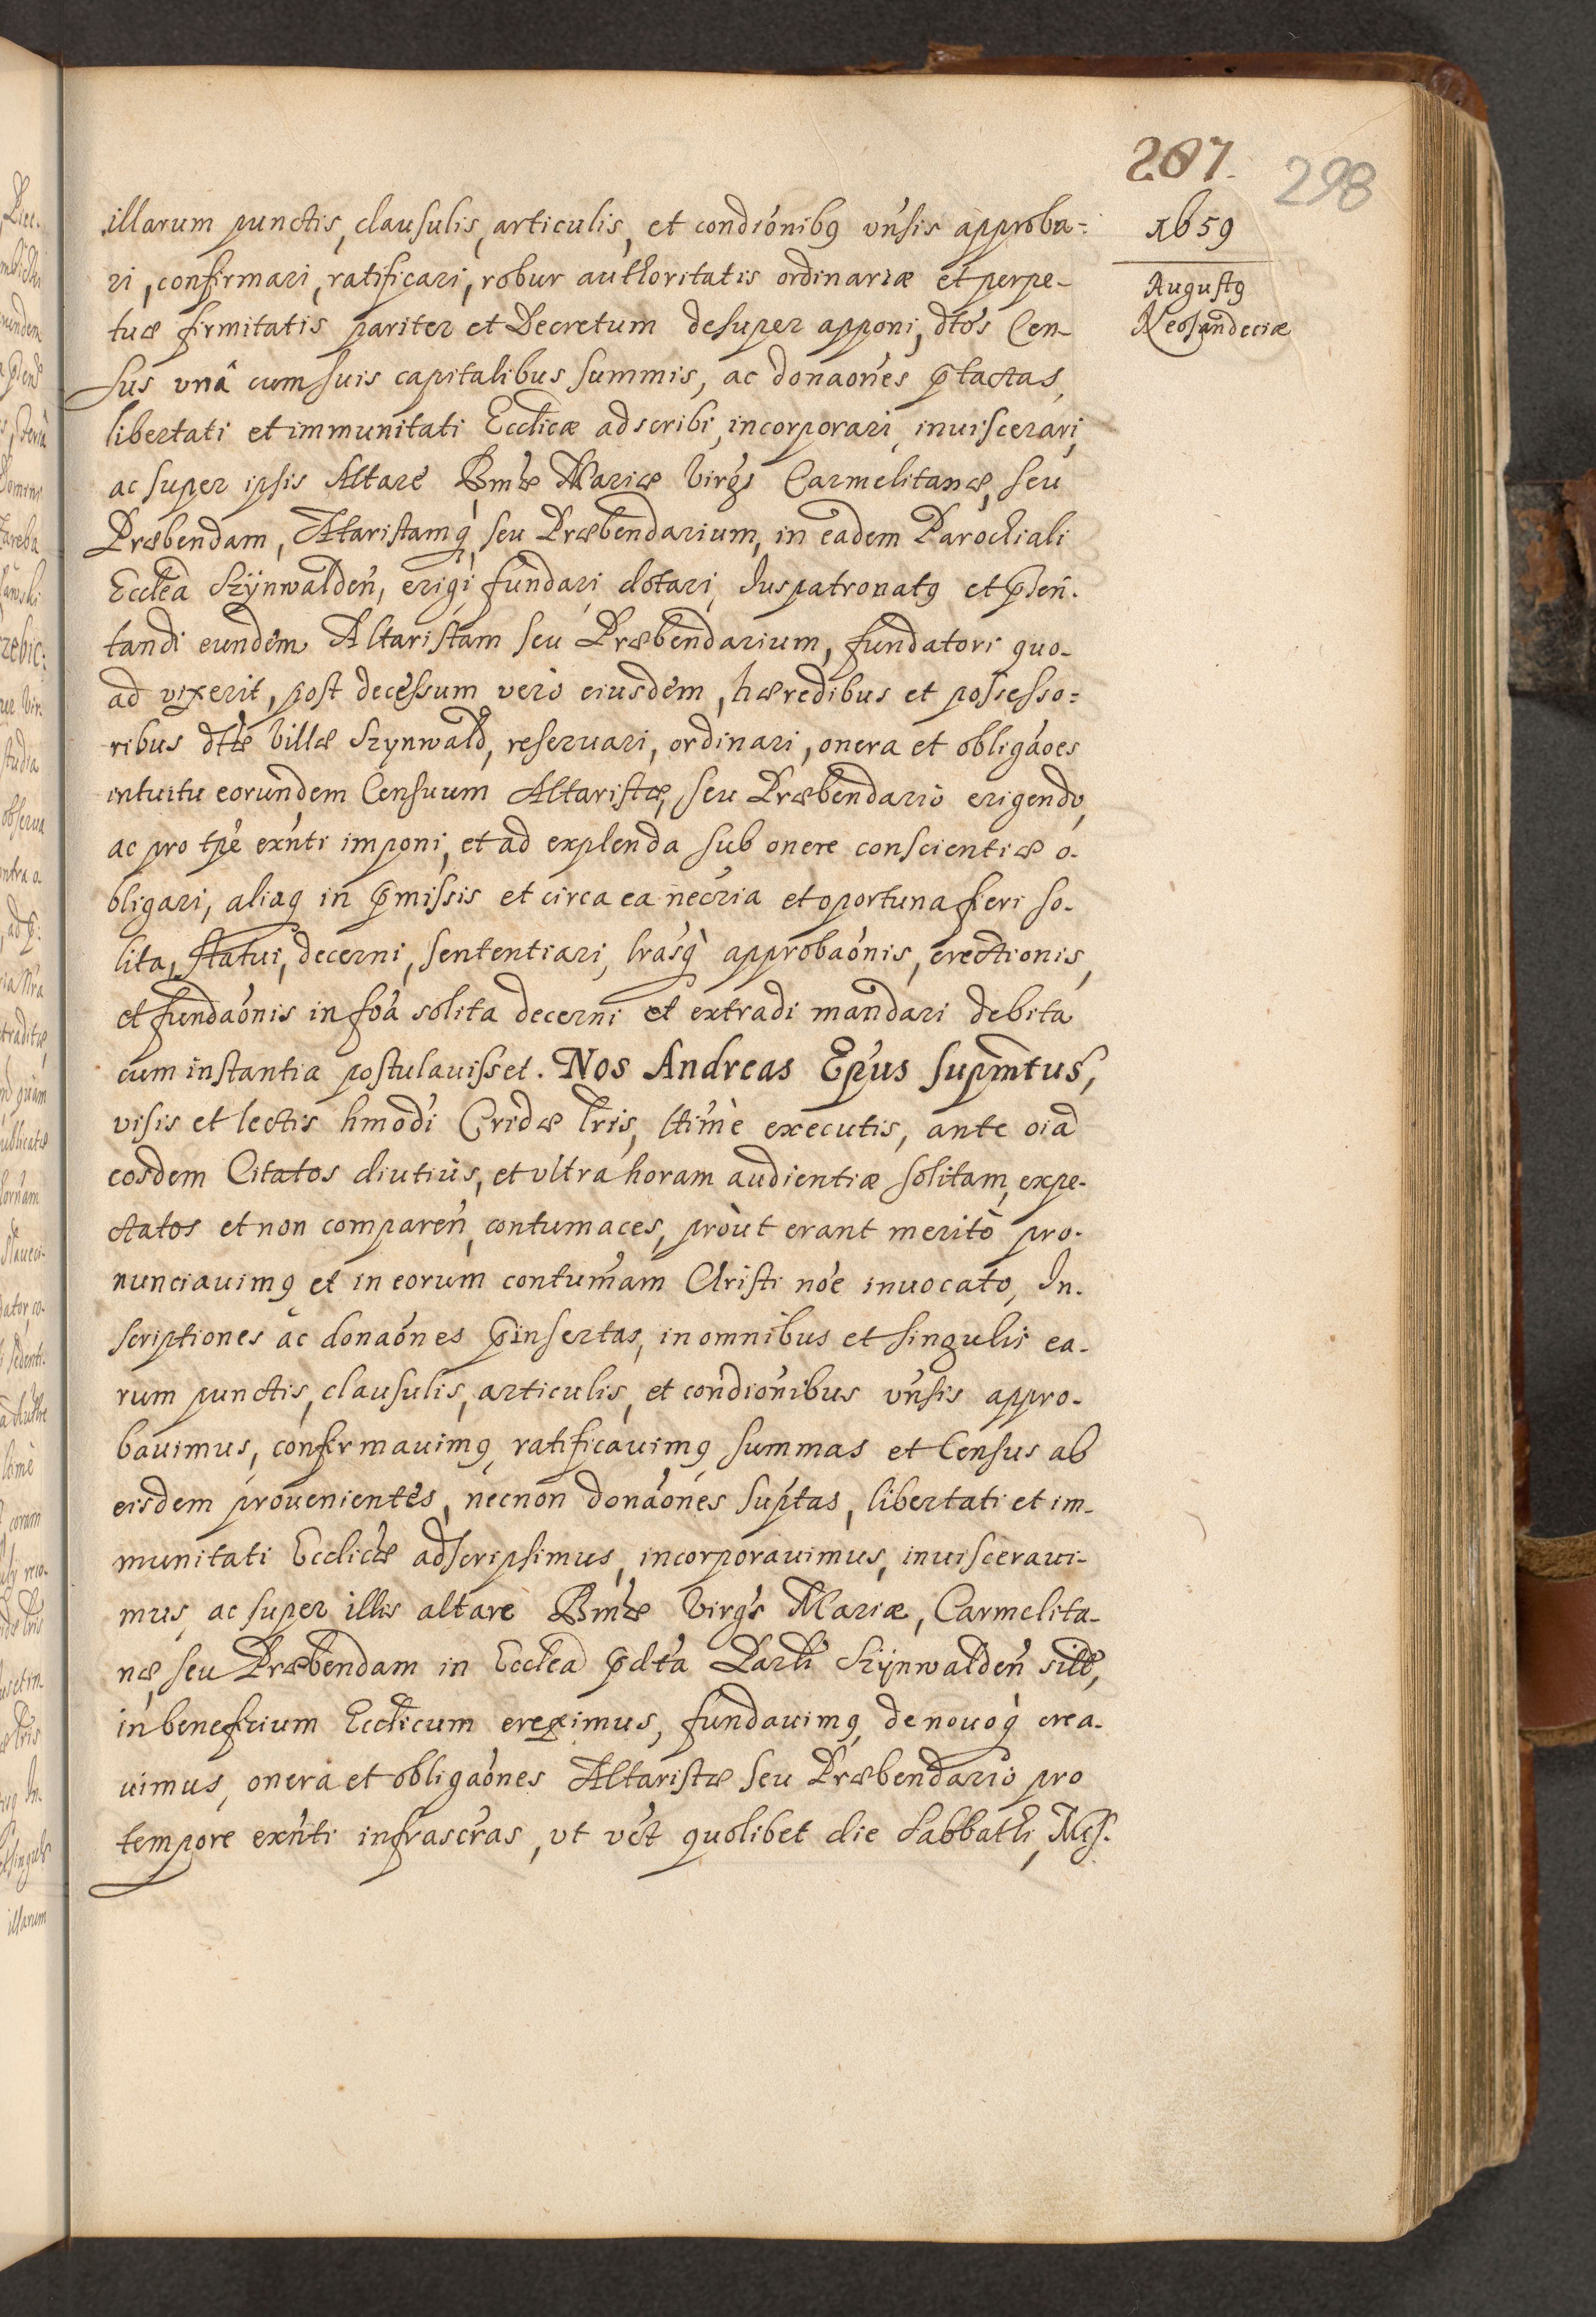 287.
298
1659
Augustq
Neosandeciæ
illarum punctis, clausulis, articulis, et condiónibq vńsis approba=
ri, confirmari, ratificari, robur authoritatis ordinariæ et perpe-
tuæ firmitatis pariter et Decretum desuper apponi, dtós Cen-
sus vnâ cum suis capitalibus summis, ac donaónes p̄tactas,
libertati et immunitati Ecclicæ adscribi, incorporari, inuiscerari,
ac super ipsis Altare Bmæ Mariæ Virgs Carmelitanæ, seu
Præbendam, Altaristamq̀, seu Præbendarium, in eadem Parochiali
Ecclea Szÿnwalden̄, erigi fundari dotari, Iuspatronatq et p̄sen-
tandi eundem Altaristam seu Præbendarium, fundatori quo-
ad vixerit, post decessum verò eiusdem, hæredibus et possesso=
ribus dtæ Villæ Szynwald, reseruari, ordinari, onera et obligáoes
intuitu eorundem Censuum Altaristæ, seu Præbendario erigendo,
ac pro tpé exńti imponi, et ad explenda sub onere conscientiæ o-
bligari, aliaq in p̄missis et circa ea necria et oportuna fieri so-
lita, statui, decerni, sententiari, lrasq̀ approbaónis, erectionis,
et fundaónis in foá solita decerni et extradi mandari debita
cum instantia postulauisset. Nos Andreas Epús supmtus,
visis et lectis hmodi Cridæ lris, ltimè executis, ante oiá
eosdem Citatos diutiùs, et vltra horam audientiæ solitam, expe-
ctatos et non comparen̄, contumaces, pròut erant meritò pro-
nunciauimq et in eorum contumam Christi nóe inuocato, In-
scriptiones ac donaónes p̄insertas, in omnibus et singulis ea-
rum punctis, clausulis, articulis, et condiónibus vńsis appro-
bauimus, confirmauimq, ratificauimq, summas et Census ab
eisdem prouenientes, necnon donáones suptas, libertati et im-
munitati Ecclicæ adscripsimus, incorporauimus, inuiscerauI-
mus, ac super illis altare Bmæ Virgs Mariæ, Carmelita-
næ, seu Præbendam in Ecclea p̄dta Parli Szÿnwalden̄ sitæ,
in beneficium Ecclicum ereximus, fundauimq, denouoq̀ crea-
uimus, onera et obligaónes Altaristæ seu Præbendario pro
tempore exńti infrascras, vt vét quolibet die Sabbathi, Mis-